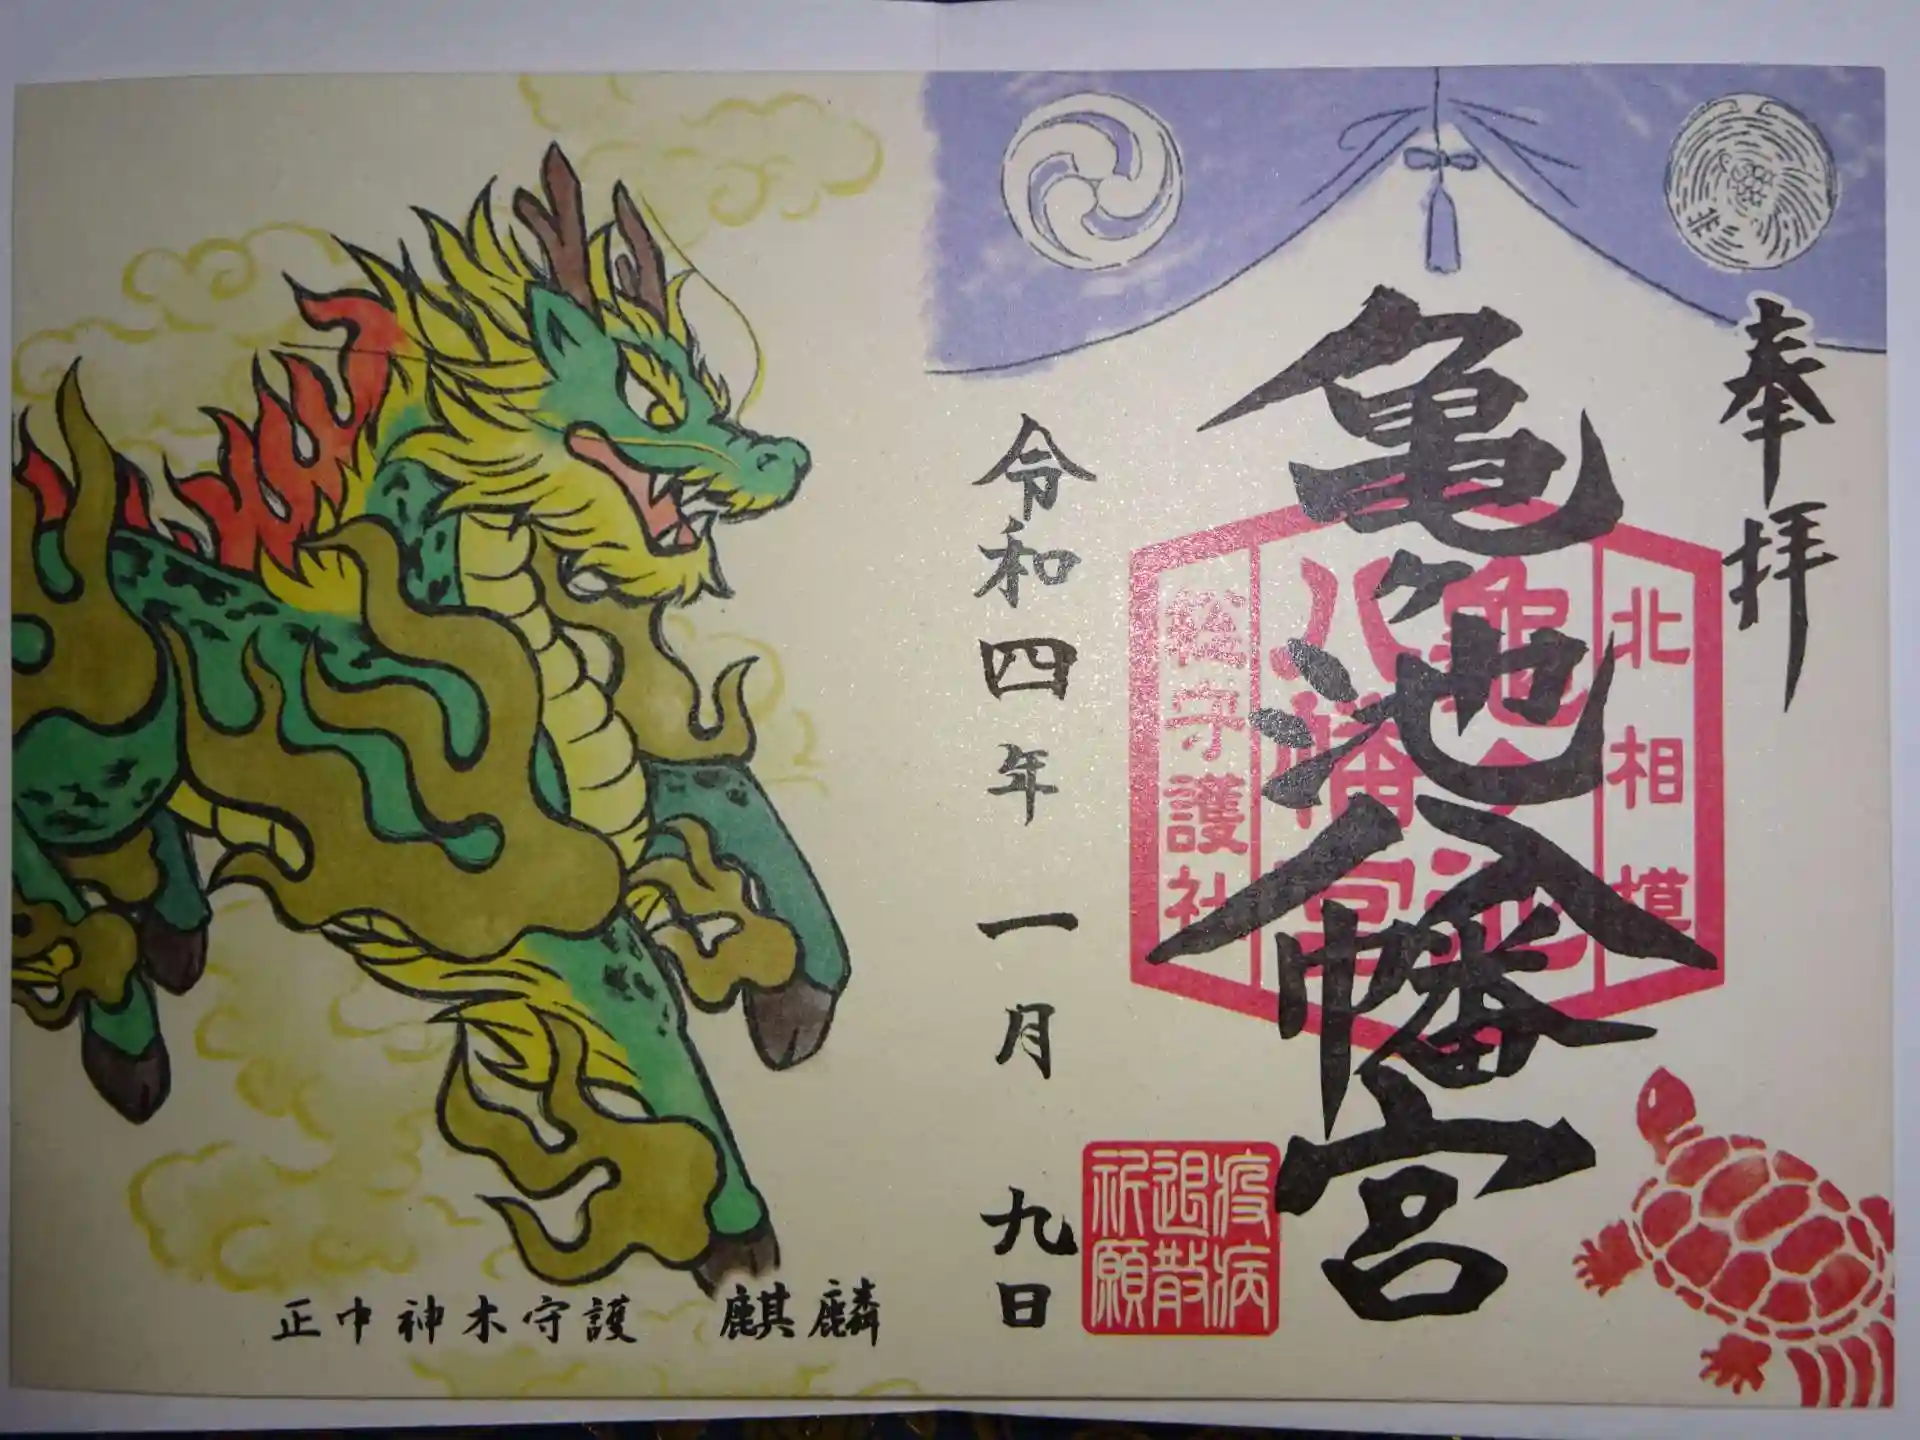 奉拝
亀ヶ池八幡宮
北相模
亀ヶ池
八幡宮
総守護社
疫病
退散
祈願
令和四年一月九日
正中神木守護 麒麟